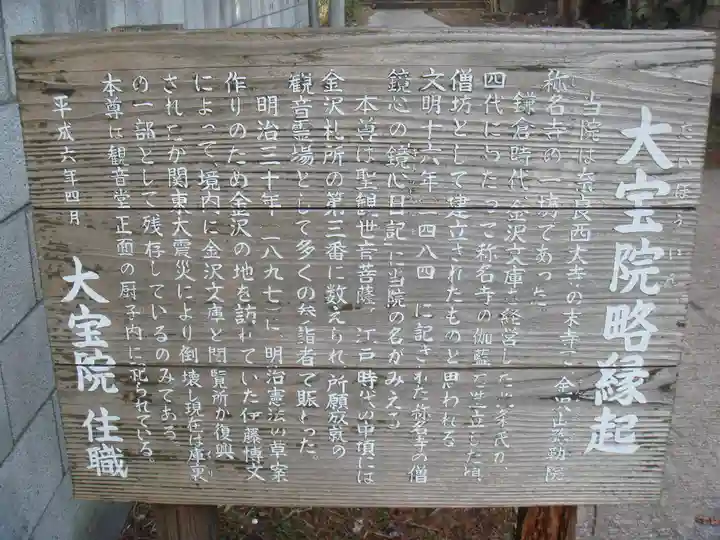 大宝院略縁起
たいほういん
当院は奈良西大寺の末寺で、金沢山弥勒院
称名寺の一坊であった。
鎌倉時代、金沢文庫を経営した北条氏が、
四代にわたって称名寺の伽藍を造立した頃、
僧坊として建立されたものと思われる
文明十六年(一四八四)に記された称名寺の僧
鏡心の「鏡心日記」に当院の名がみえる
本尊は聖観世音菩薩、江戸時代の中頃には
金沢札所の第三番に数えられ、所願成就の
観音霊場として多くの参詣者で賑わった。
明治三十年(一八九七)に、明治憲法の草案
作りのため金沢の地を訪れていた伊藤博文
によって、境内に金沢文庫と閲覧所が復興
されたが関東大震災により倒壊し現在は庫裏
の一部として残存しているのみである
本尊は観音堂正面の厨子内に祀られている。
平成六年四月
大宝院 住職